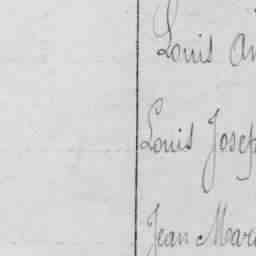 Louis An
Louis Josep
Jean Mari